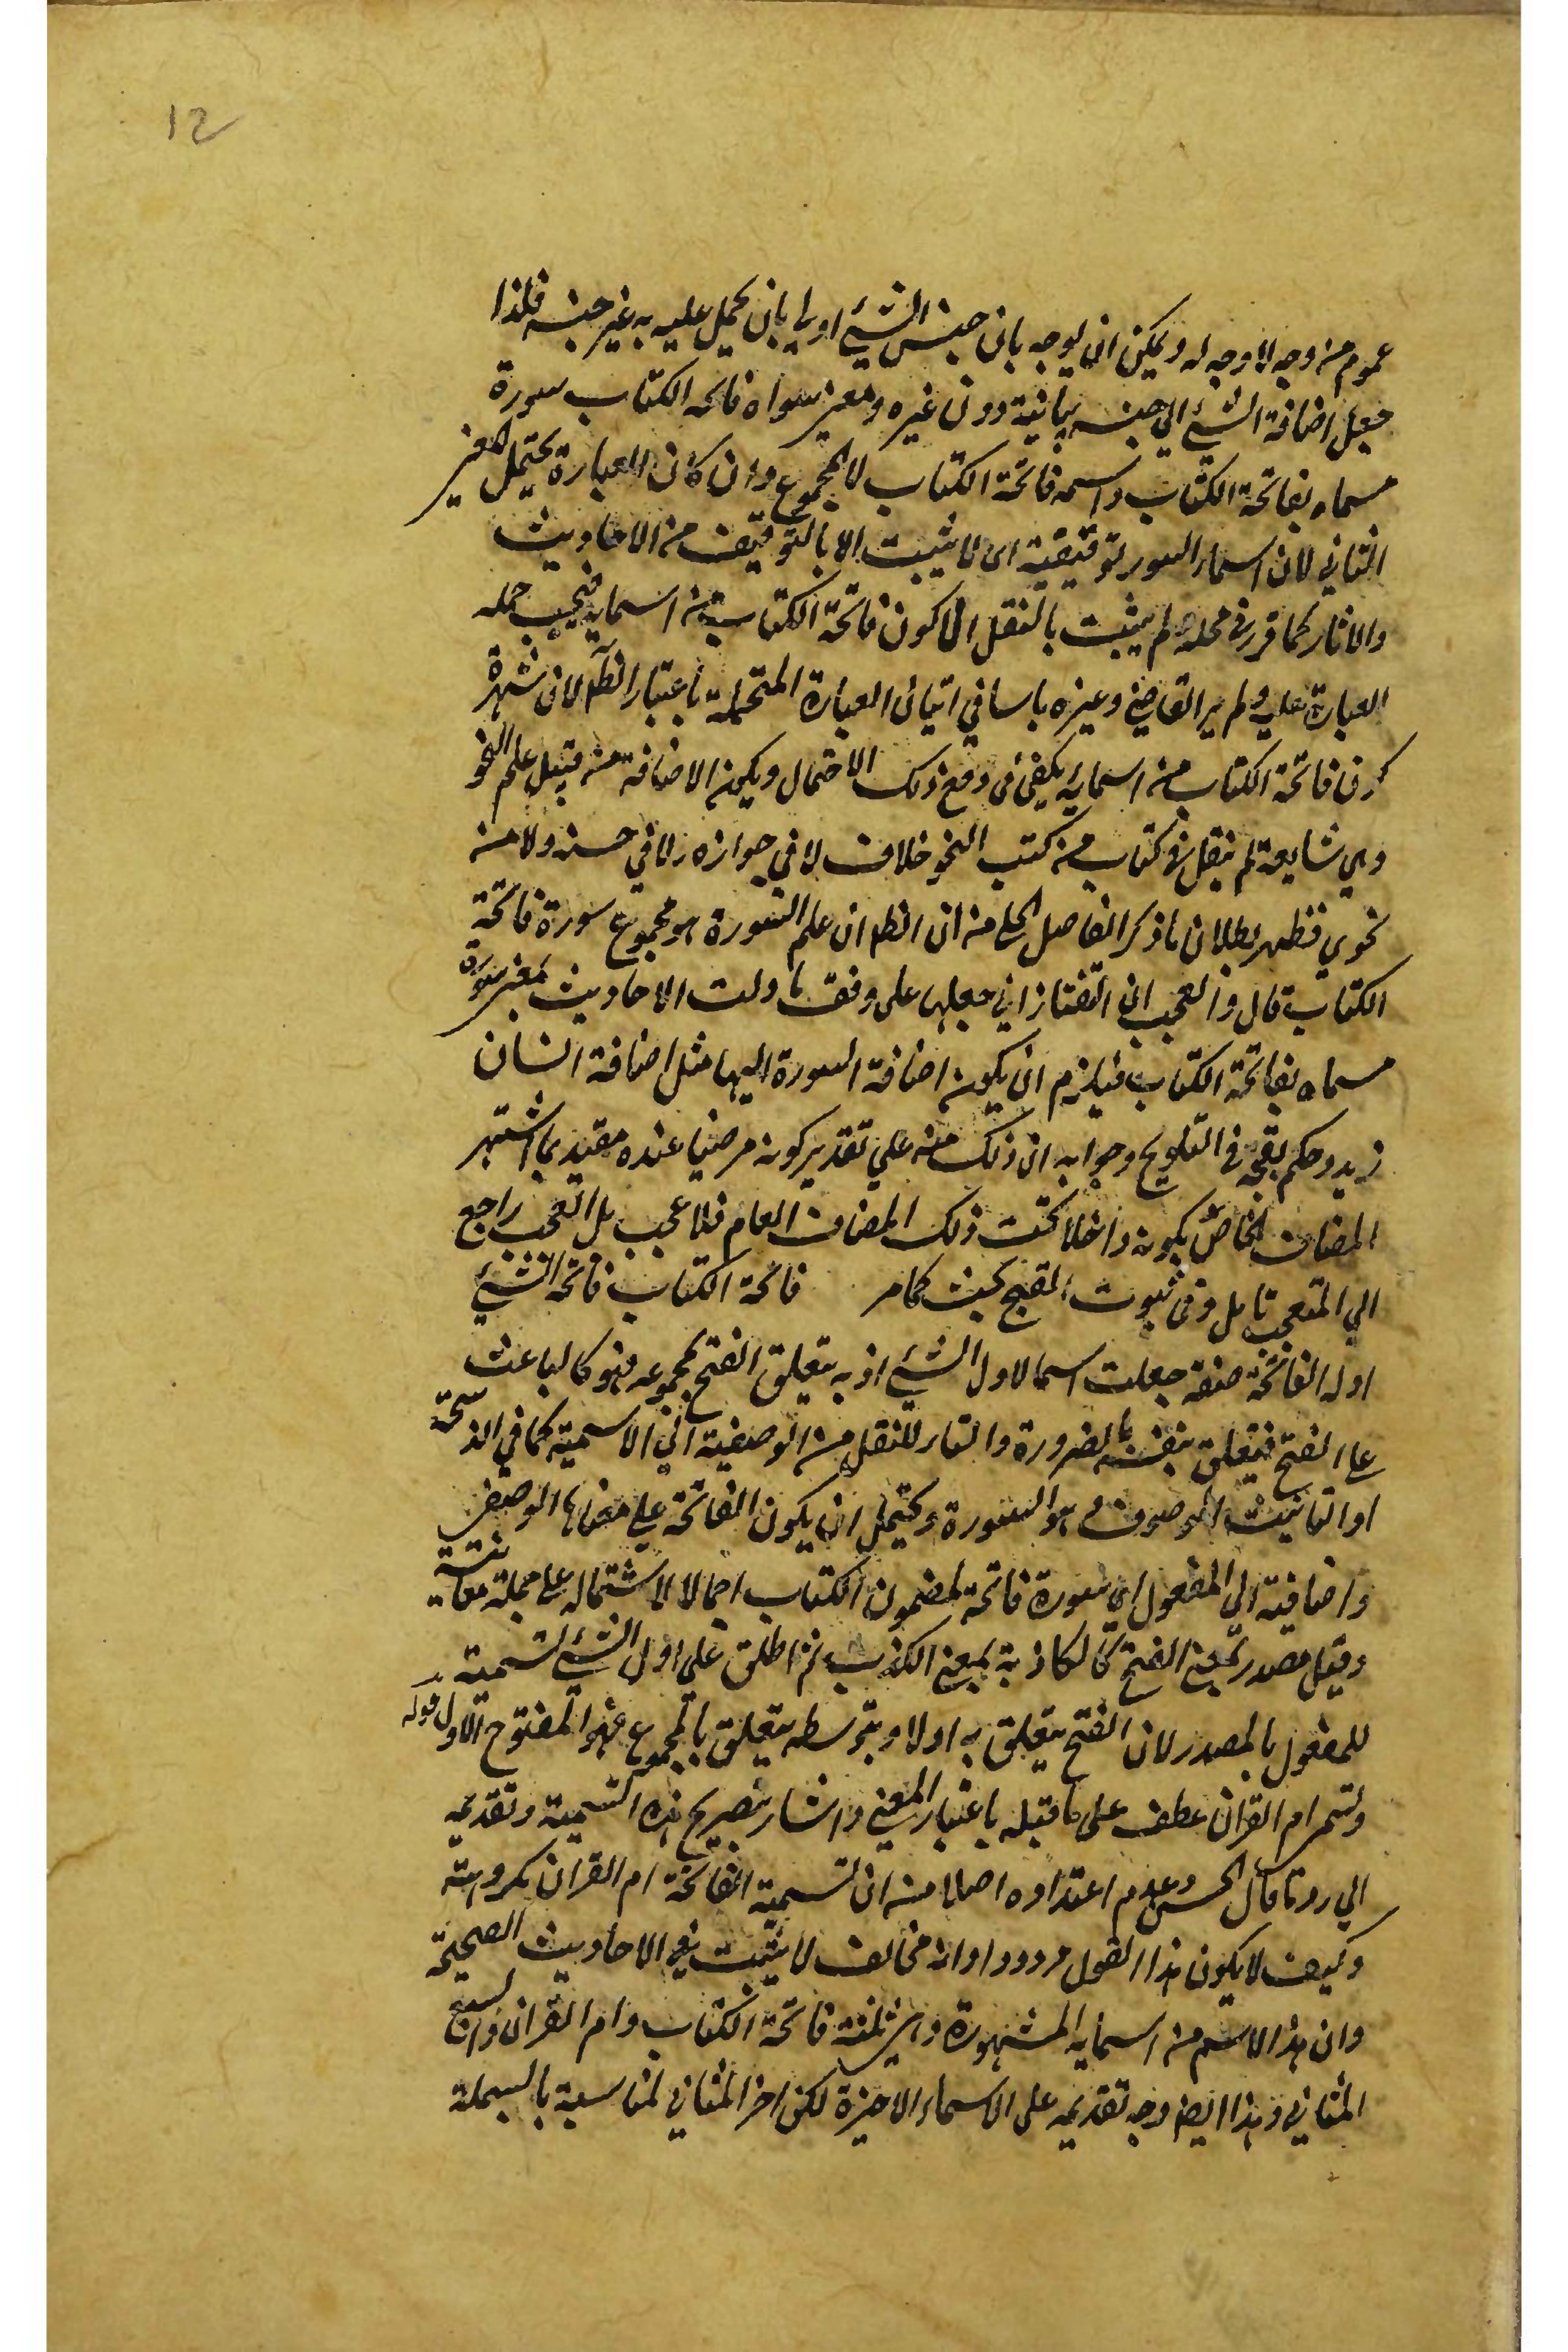 12
عموم من وجه لا وجه له ويمكن ان يوجه بان جنس الشيء اولي بان يحمل عليه به غير جنسه فلذا
جعل اضافة الشيء الي جنسه بيانية دون غيره ومعنى سواه فاتحة الكتاب سورة
مسماه بفاتحة الكتاب واسمه فاتحة الكتاب لا المجموع وان كان العبارة يحتمل المعنى
الثاني لان اسماء السور توقيفية اى لا يثبت الا بالتوقيف من الاحاديث
والاثار كما قرر في محله ولم يثبت بالنقل الا كون فاتحة الكتاب من اسمايه فيجب حمله
العبارة عليه ولم ير القاضي وغيره باسا في اتيان العبارة المحتملة باعتبار الظ لان شهرة
كون فاتحة الكتاب من اسمايه يكفى فى دفع ذلك الاحتمال ويكون الاضافة من قبيل علم النحو
وهي شايعة لم ينقل في كتاب من كتب النحو خلاف لا في جوازه ولا في حسنه ولا منه
نحوي فظهر بطلان ما ذكر الفاضل الجلى من ان الظ ان علم السورة هو مجموع سورة فاتحة
الكتاب قال والعجب ان التفتازاني جعلها على وفق ما دلت الاحاديث بمعنى سورة
مسماه بفاتحة الكتاب فيلزم ان يكون اضافة السورة اليها مثل اضافة انسان
زيد وحكم بقبحه في التلويح وجوابه ان ذلك منه علي تقدير كونه مرضيا عنده مقيد بما اشتهر
المضاف الخاص بكونه داخلا تحت ذلك المضاف العام فلا عجب بل العجب راجع
الي المتعجب تامل وفى ثبوت القبح بحث كمامر فاتحة الكتاب فاتحة الشيء
اوله الفاتحة صفة جعلت اسما لاول الشيء اذ به يتعلق الفتح بمجموعه فهو كالباعث
على الفتح فيتعلق بنفسه بالضرورة والتاء للنقل من الوصفية الي الاسمية كما في الذبيحة
او التانيث الموصوف وهو السورة ويحتمل ان يكون الفاتحة علي معناها الوصفى
واضافية الى المفعول اي سورة فاتحة لمضمون الكتاب اجمالا لاشتماله على جملة معانيه
وقيل مصدر بمعنى الفتح كالكاذبة بمعنى الكذب ثم اطلق على اول الشيء تسمية
للمفعول بالمصدر لان الفتح يتعلق به اولا وبتوسطه يتعلق بالمجموع فهو المفتوح الاول قوله
وتسمى ام القران عطف على ما قبله باعتبار المعنى واشار بتصريح هذه التسمية وتقديمه
الي رد ما قال الحسن وعدم اعتداده اصلا من ان تسمية الفاتحة ام القران مكروهة
وكيف لا يكون هذا القول مردودا وانه مخالف لا يثبت في الاحاديث الصحيحة
وان هذا الاسم من اسمايه المشهورة وهي ثلثة فاتحة الكتاب وام القران والسبع
المثاني وهذا ايضا وجه تقديمه على الاسماء الاخيرة لكن اخر المثاني لمناسبة بالبسملة